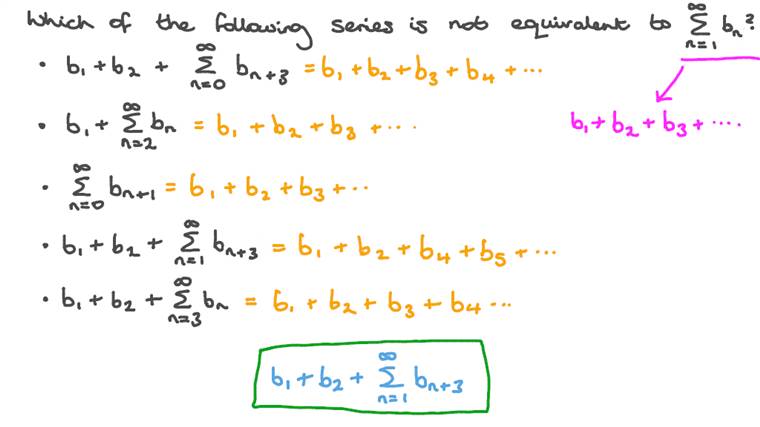 Which of the following series is not equivalent to ∞∑n=1 bₙ?
• b₁ + b₂ + ∞∑n=0 bₙ₊₃ = b₁ + b₂ + b₃ + b₄ + ...
• b₁ + ∞∑n=2 bₙ = b₁ + b₂ + b₃ + ...
b₁ + b₂ + b₃ + ....
• ∞∑n=0 bₙ₊₁ = b₁ + b₂ + b₃ + ..
• b₁ + b₂ + ∞∑n=1 bₙ₊₃ = b₁ + b₂ + b₄ + b₅ + ...
• b₁ + b₂ + ∞∑n=3 bₙ = b₁ + b₂ + b₃ + b₄ ...
b₁ + b₂ + ∞∑n=1 bₙ₊₃